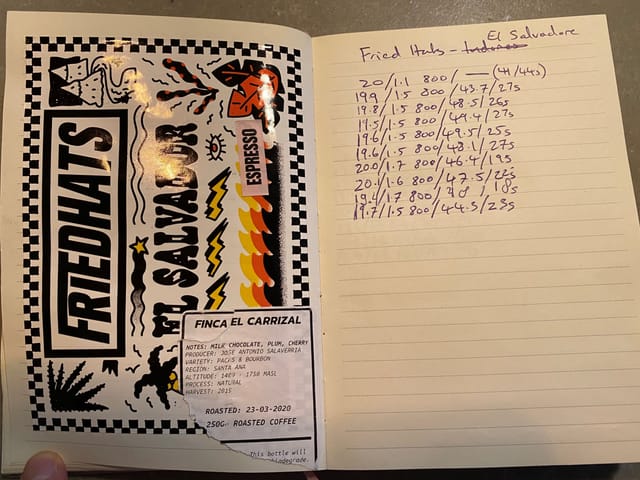 FRIEDHATS
EL SALVADOR
ESPRESSO
FINCA EL CARRIZAL
NOTES: MILK CHOCOLATE, PLUM, CHERRY
PRODUCER: JOSE ANTONIO SALAVERRIA
VARIETY: PACAS & BOURBON
REGION: SANTA ANA
ALTITUDE: 1489 - 1750 MASL
PROCESS: NATURAL
HARVEST: 2015
ROASTED: 23-03-2020
250G. ROASTED COFFEE
This bottle will
biodegrade.
El Salvadore
Fried Hats -
20/1.1 800/ — (41/44s)
19.9/1.5 800/43.7/27s
19.8/1.5 800/48.5/26s
19.5/1.5 800/49.4/27s
19.6/1.5 800/49.5/25s
19.6/1.5 800/48.1/27s
20.0/1.7 800/46.4/19s
20.1/1.6 800/47.5/22s
19.4/1.7 800/48/18s
19.7/1.5 800/44.5/23s